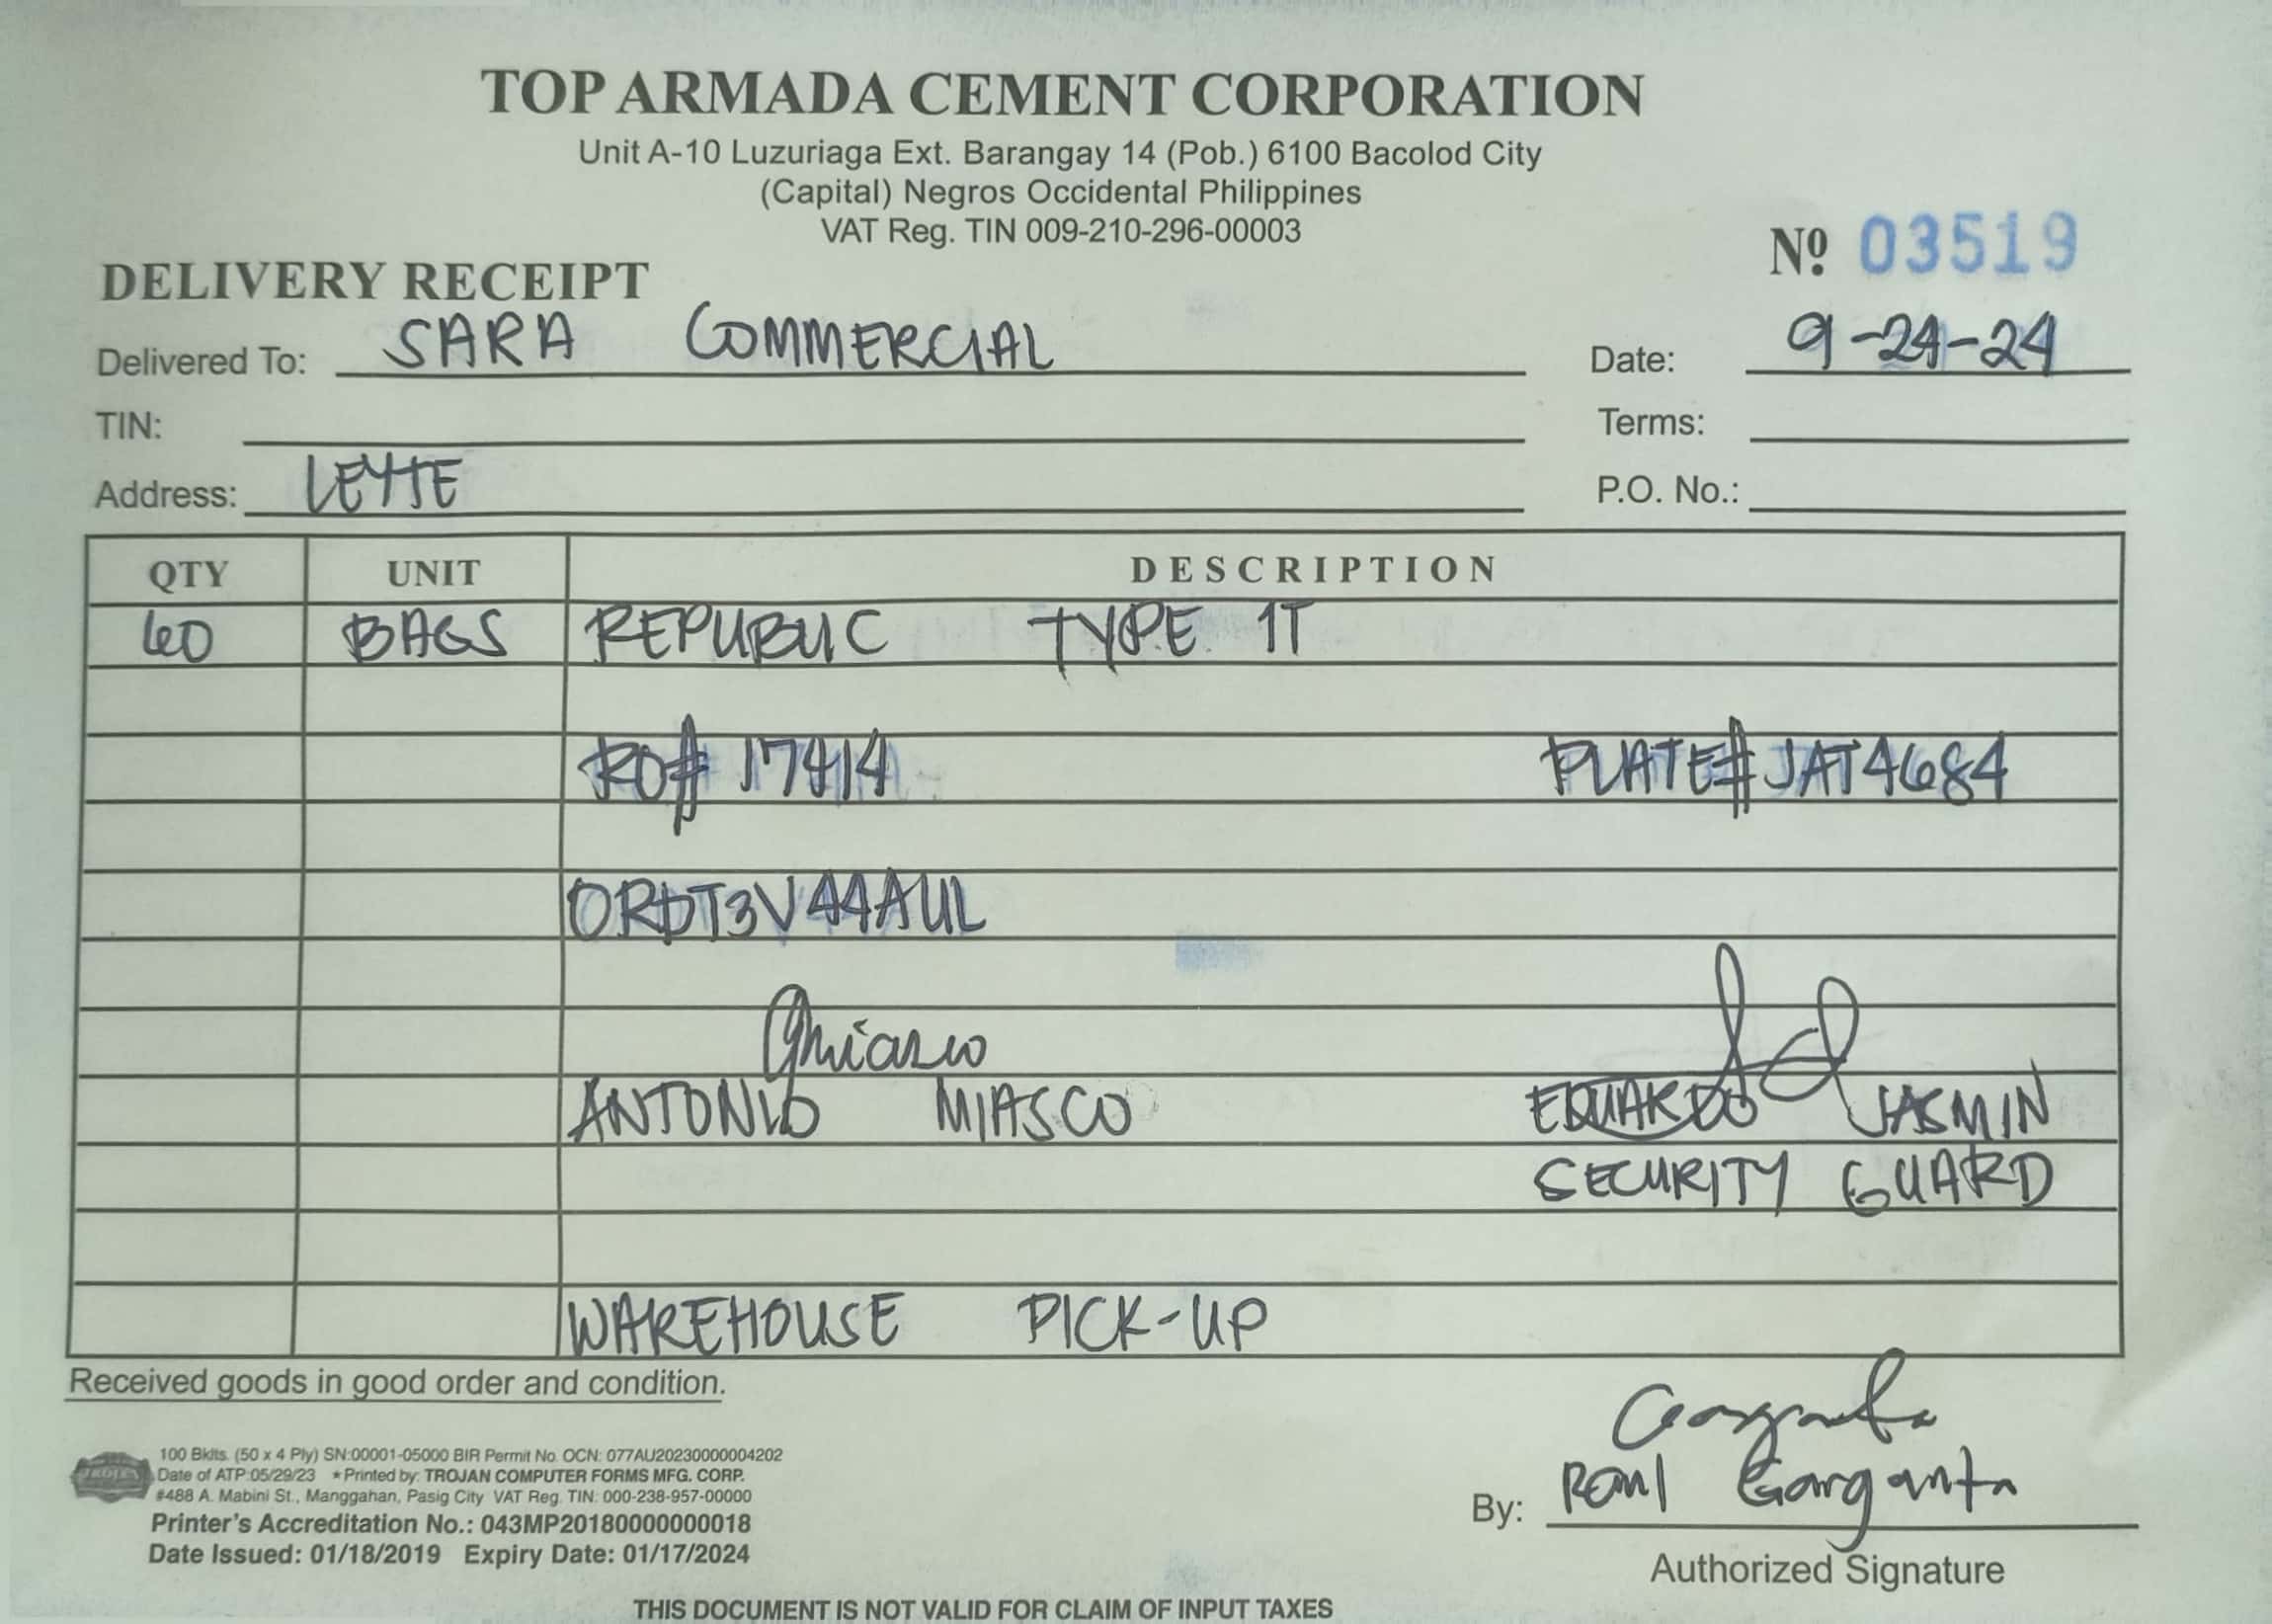 TOP ARMADA CEMENT CORPORATION
Unit A-10 Luzuriaga Ext. Barangay 14 (Pob.) 6100 Bacolod City
(Capital) Negros Occidental Philippines
VAT Reg. TIN 009-210-296-00003
Nº 03519
DELIVERY RECEIPT
Delivered To: SARA COMMERCIAL Date: 9-24-24
TIN: Terms:
Address: LEYTE P.O. No.:
QTY UNIT DESCRIPTION
60 BAGS REPUBLIC TYPE 1T
RO# 17414 PLATE# JAT4684
ORDT3V44AUL
ANTONIO MIASCO EDUARDO JASMIN
SECURITY GUARD
WAREHOUSE PICK-UP
Received goods in good order and condition.
100 Bklts. (50 x 4 Ply) SN:00001-05000 BIR Permit No. OCN: 077AU20230000004202
Date of ATP:05/29/23 * Printed by: TROJAN COMPUTER FORMS MFG. CORP.
#488 A. Mabini St., Manggahan, Pasig City VAT Reg. TIN: 000-238-957-00000
Printer's Accreditation No.: 043MP20180000000018
Date Issued: 01/18/2019 Expiry Date: 01/17/2024
By: Raul Garganta
Authorized Signature
THIS DOCUMENT IS NOT VALID FOR CLAIM OF INPUT TAXES